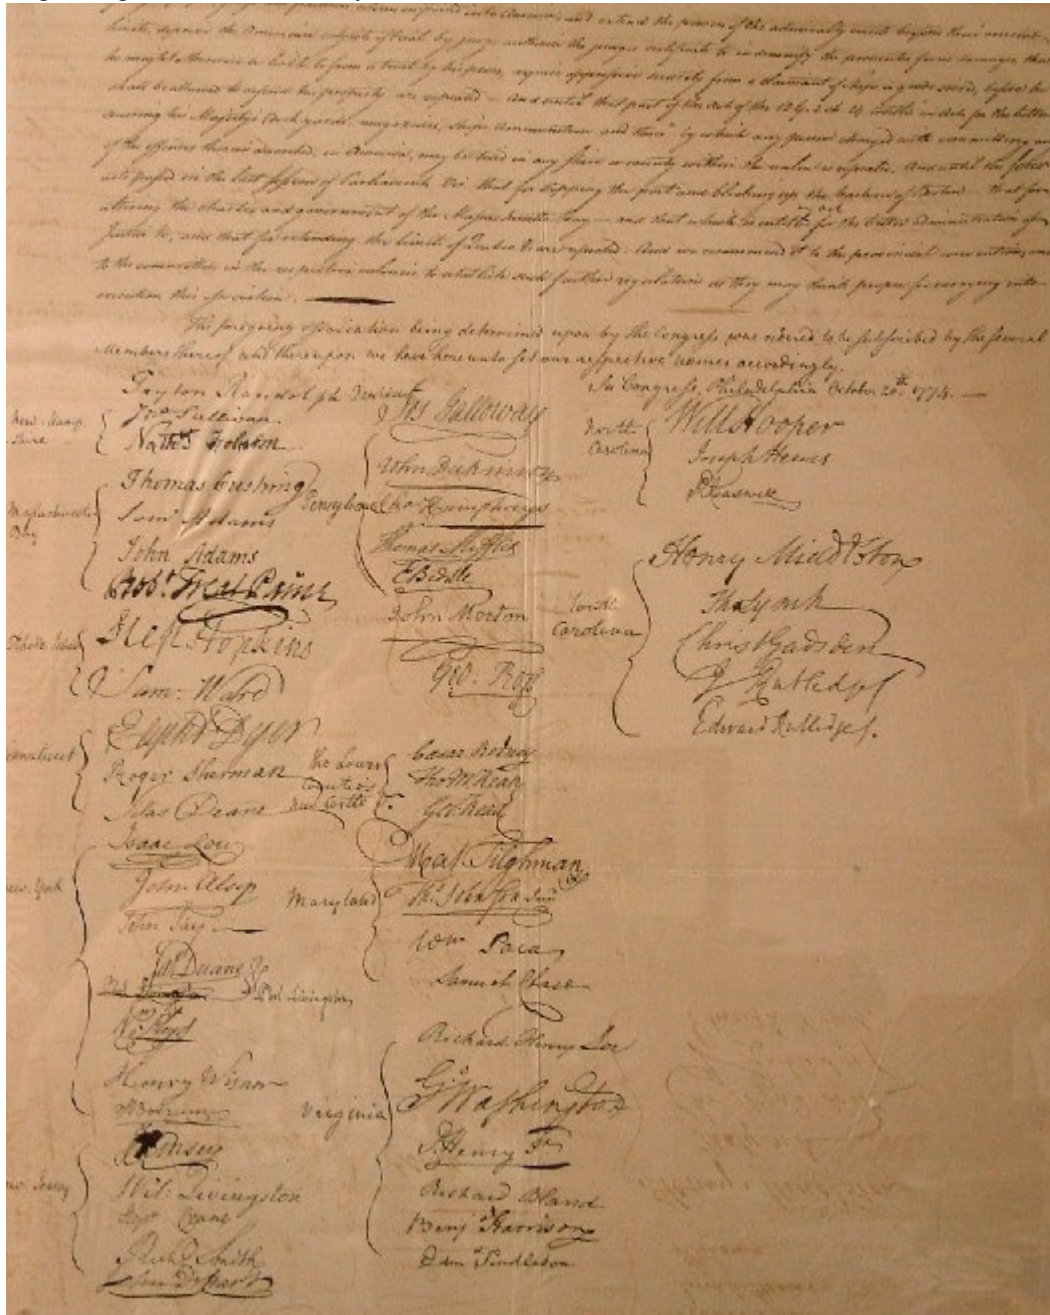 limits, deprive the American subject of trial by jury, authorise the judges certificate to indemnify the prosecutor from damages, that
he might otherwise be liable to from a trial by his peers, require oppressive security from a claimant of ships or goods seized, before he
shall be allowed to defend his property, are repealed – And until that part of the Act of the 12 G. 3. ch. 24 entitled "an Act for the better
securing his Majesty's dock-yards, magazines, ships, ammunition and stores" by which any person charged with committing any
of the offences therein described, in America, may be tried in any shire or county within the realm is repealed. And until the four
acts passed in the last session of Parliament Viz that for stopping the port and blocking up the harbour of Boston – that for
altering the charter and government of the Massachusetts bay – and that which is entitled for the better administration of
Justice &c, and that for extending the limits of Quebec &c are repealed. And we recommend it to the provincial conventions and
to the committees in the respective colonies to establish such farther regulations as they may think proper for carrying into
execution this association.
The foregoing association being determined upon by the Congress was ordered to be subscribed by the several
Members thereof and thereupon we have hereunto set our respective names accordingly.
In Congress, Philadelphia October 20th 1774.
Peyton Randolph President
New Hamp-
shire
Jno Sullivan
Nathl Folsom
Massachusetts
Bay
Thomas Cushing
Saml Adams
John Adams
Robt Treat Paine
Rhode Island
Step Hopkins
Sam: Ward
Connecticut
Elipht Dyer
Roger Sherman
Silas Deane
New York
Isaac Low
John Alsop
John Jay
Jas Duane
Phil Livingston
Wm Floyd
Henry Wisner
S Boerum
New Jersey
J Kinsey
Wil: Livingston
Stepn Crane
Richd Smith
John De Hart
Jos Galloway
Pensylvania
John Dickinson
Cha Humphreys
Thomas Mifflin
E Biddle
John Morton
Geo: Ross
The Lower
Counties
New Castle
Caesar Rodney
Tho M:Kean
Geo Read
Maryland
Mat Tilghman
Th. Johnson Junr
Wm Paca
Samuel Chase
Virginia
Richard Henry Lee
Go Washington
P. Henry Jr
Richard Bland
Benj Harrison
Edmd Pendleton
North
Carolina
Will Hooper
Joseph Hewes
R Caswell
South
Carolina
Henry Middleton
Tho Lynch
Christ Gadsden
J Rutledge
Edward Rutledge